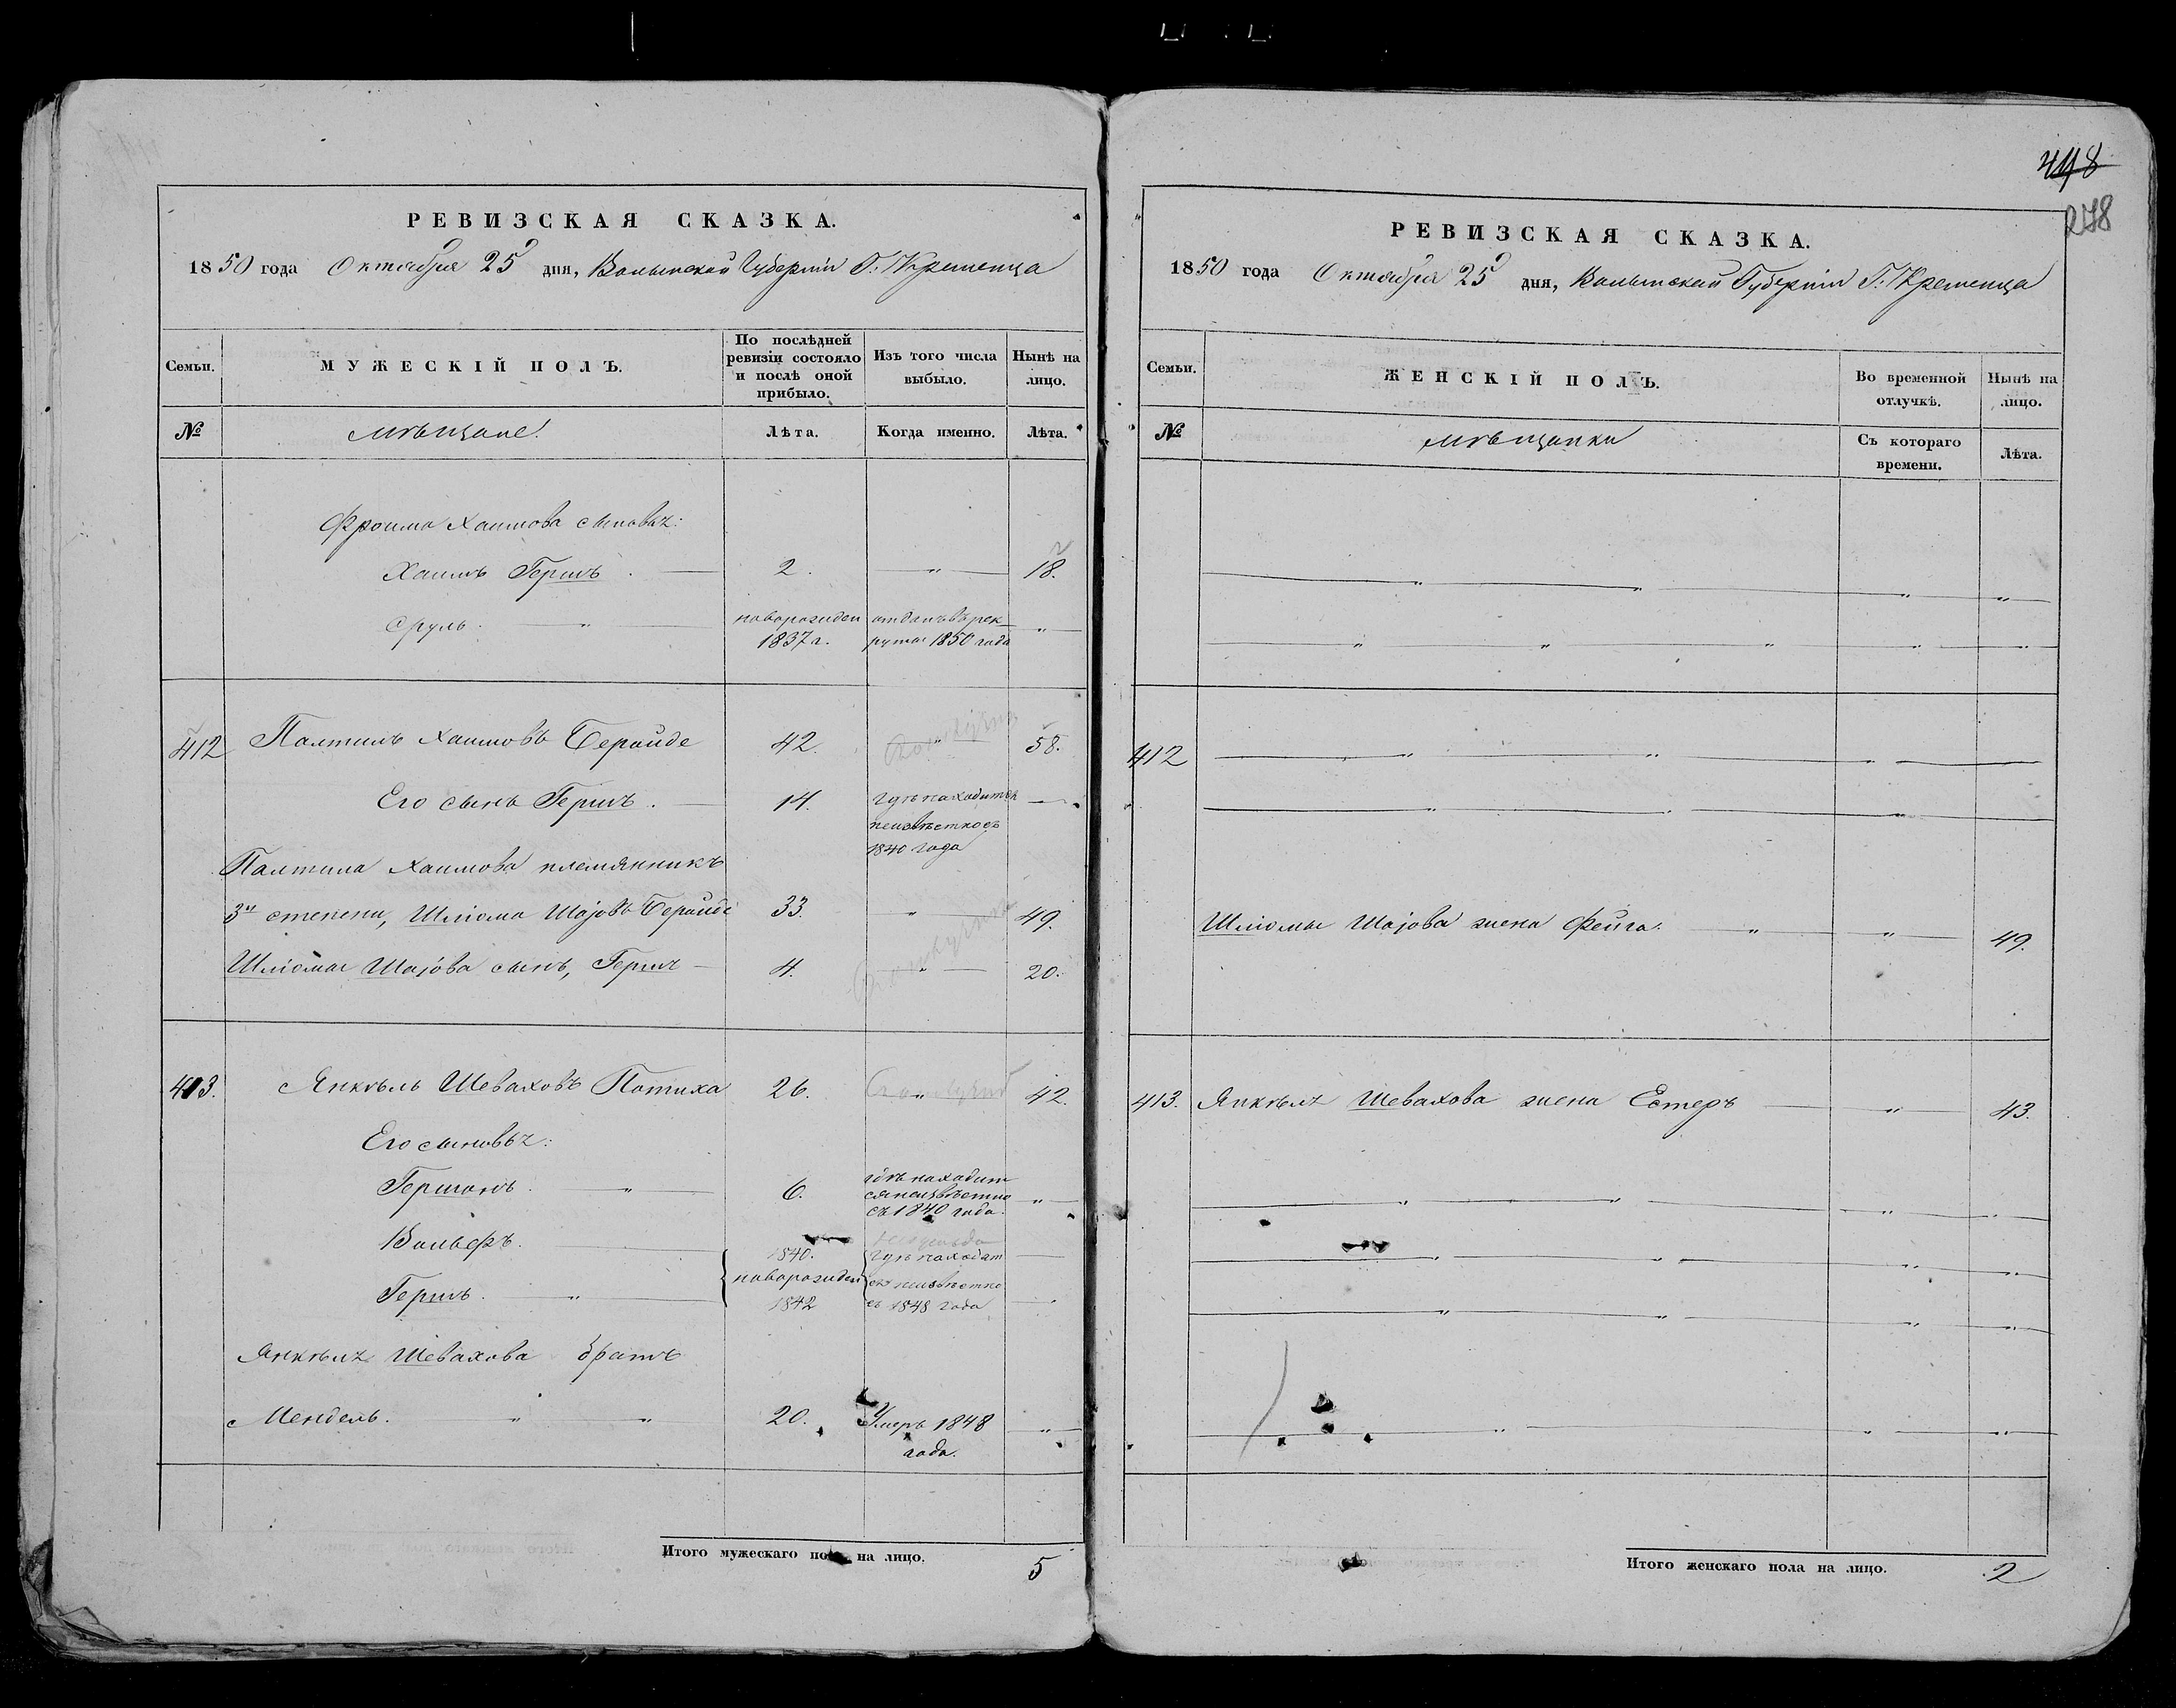 РЕВИЗСКАЯ СКАЗКА.
1850 года Октября 25 дня, Волынской Губерніи Г: Кременца
Семьи.
МУЖЕСКІЙ ПОЛЪ.
По послѣдней ревизіи состояло и послѣ оной прибыло.
Изъ того числа выбыло.
Нынѣ на лицо.
№
мѣщане.
Лѣта.
Когда именно.
Лѣта.
Фроима Хаимова сыновья:
Хаимъ Гершъ. 2. " 18.
Сруль. " новорожден 1837 г. отданъ въ рек-
руты 1850 года "
412 Палтиль Хаимовъ Беройде 42. " 58.
Его сынъ Гершъ. 14. гдѣ находится
неизвѣстно съ
1840 года
Палтиля Хаимова племянникъ
3й степени, Шліома Шаіовъ Беройде 33. " 49.
Шліомы Шаіова сынъ, Гершъ 4. " 20.
413. Янкѣль Шеваховъ Потиха 26. " 42.
Его сыновья:
Гершонъ. " 6. гдѣ находит
ся неизвѣстно
съ 1840 года. "
Вольфъ. 1840. гдѣ находят
новорожден ся неизвѣстно
Гершъ. " 1842 съ 1848 года
Янкѣля Шевахова братъ
Мендель. " " 20. Умеръ 1848 "
года.
Итого мужескаго пола на лицо. 5
448
278
РЕВИЗСКАЯ СКАЗКА.
1850 года Октября 25 дня, Волынской Губерніи Г: Кременца
Семьи.
ЖЕНСКІЙ ПОЛЪ.
Во временной отлучкѣ.
Нынѣ на лицо.
№
мѣщанки
Съ котораго времени.
Лѣта.
" " " "
" " " " "
412 " " "
" " "
Шліомы Шаіова жена Фейга. " " 49.
413. Янкѣля Шевахова жена Естеръ " 43.
" " " "
" " " "
" " " "
" " "
Итого женскаго пола на лицо. 2